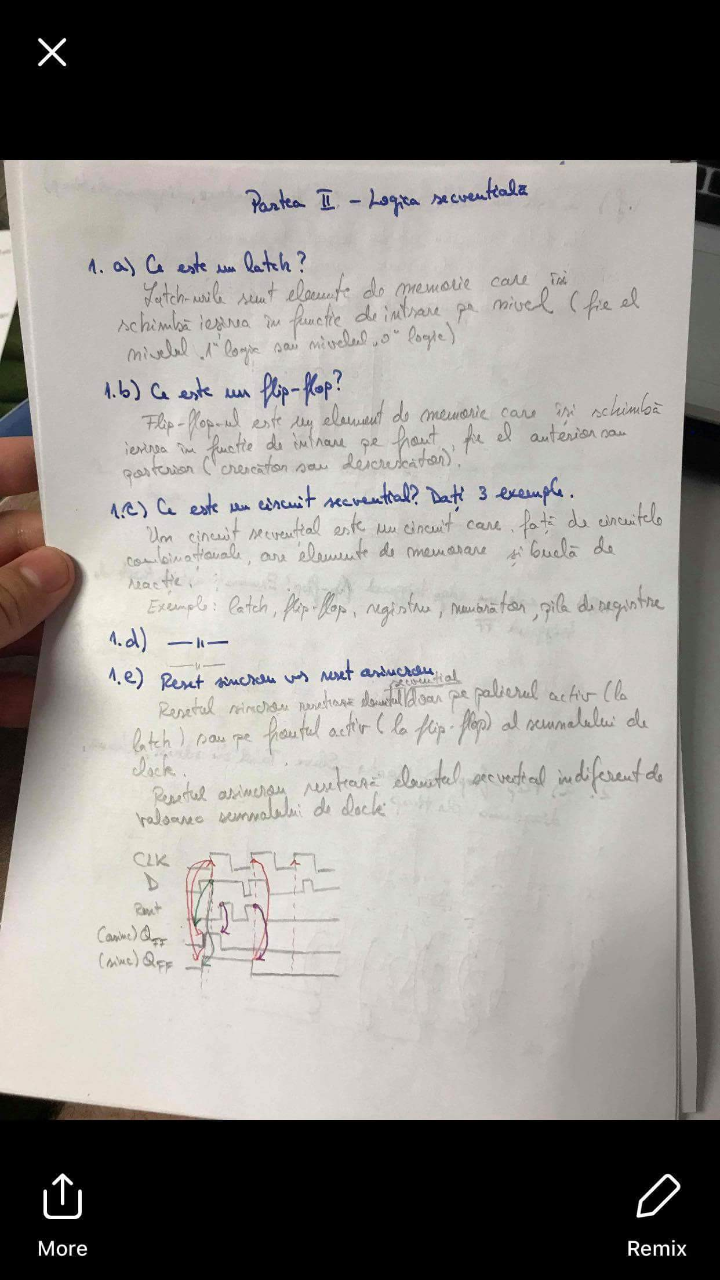 Partea II - Logica secvențială
1. a) Ce este un latch?
Latch-urile sunt elemente de memorie care își
schimbă ieșirea în funcție de intrare pe nivel (fie el
nivelul „1" logic sau nivelul „0" logic)
1.b) Ce este un flip-flop?
Flip-flop-ul este un element de memorie care își schimbă
ieșirea în funcție de intrare pe front, fie el anterior sau
posterior (crescător sau descrescător).
1.c) Ce este un circuit secvențial? Dați 3 exemple.
Un circuit secvențial este un circuit care, față de circuitele
combinaționale, are elemente de memorare și buclă de
reacție.
Exemple: latch, flip-flop, registru, numărător, pila de registre
1.d) —〃—
—〃—
1.e) Reset sincron vs reset asincron
secvential
Resetul sincron resetează elementul doar pe palierul activ (la
latch) sau pe frontul activ (la flip-flop) al semnalului de
clock.
Resetul asincron resetează elemtul secvential indiferent de
valoarea semnalului de clock.
CLK
D
Reset
(asinc) QFF
(sinc) QFF
More
Remix